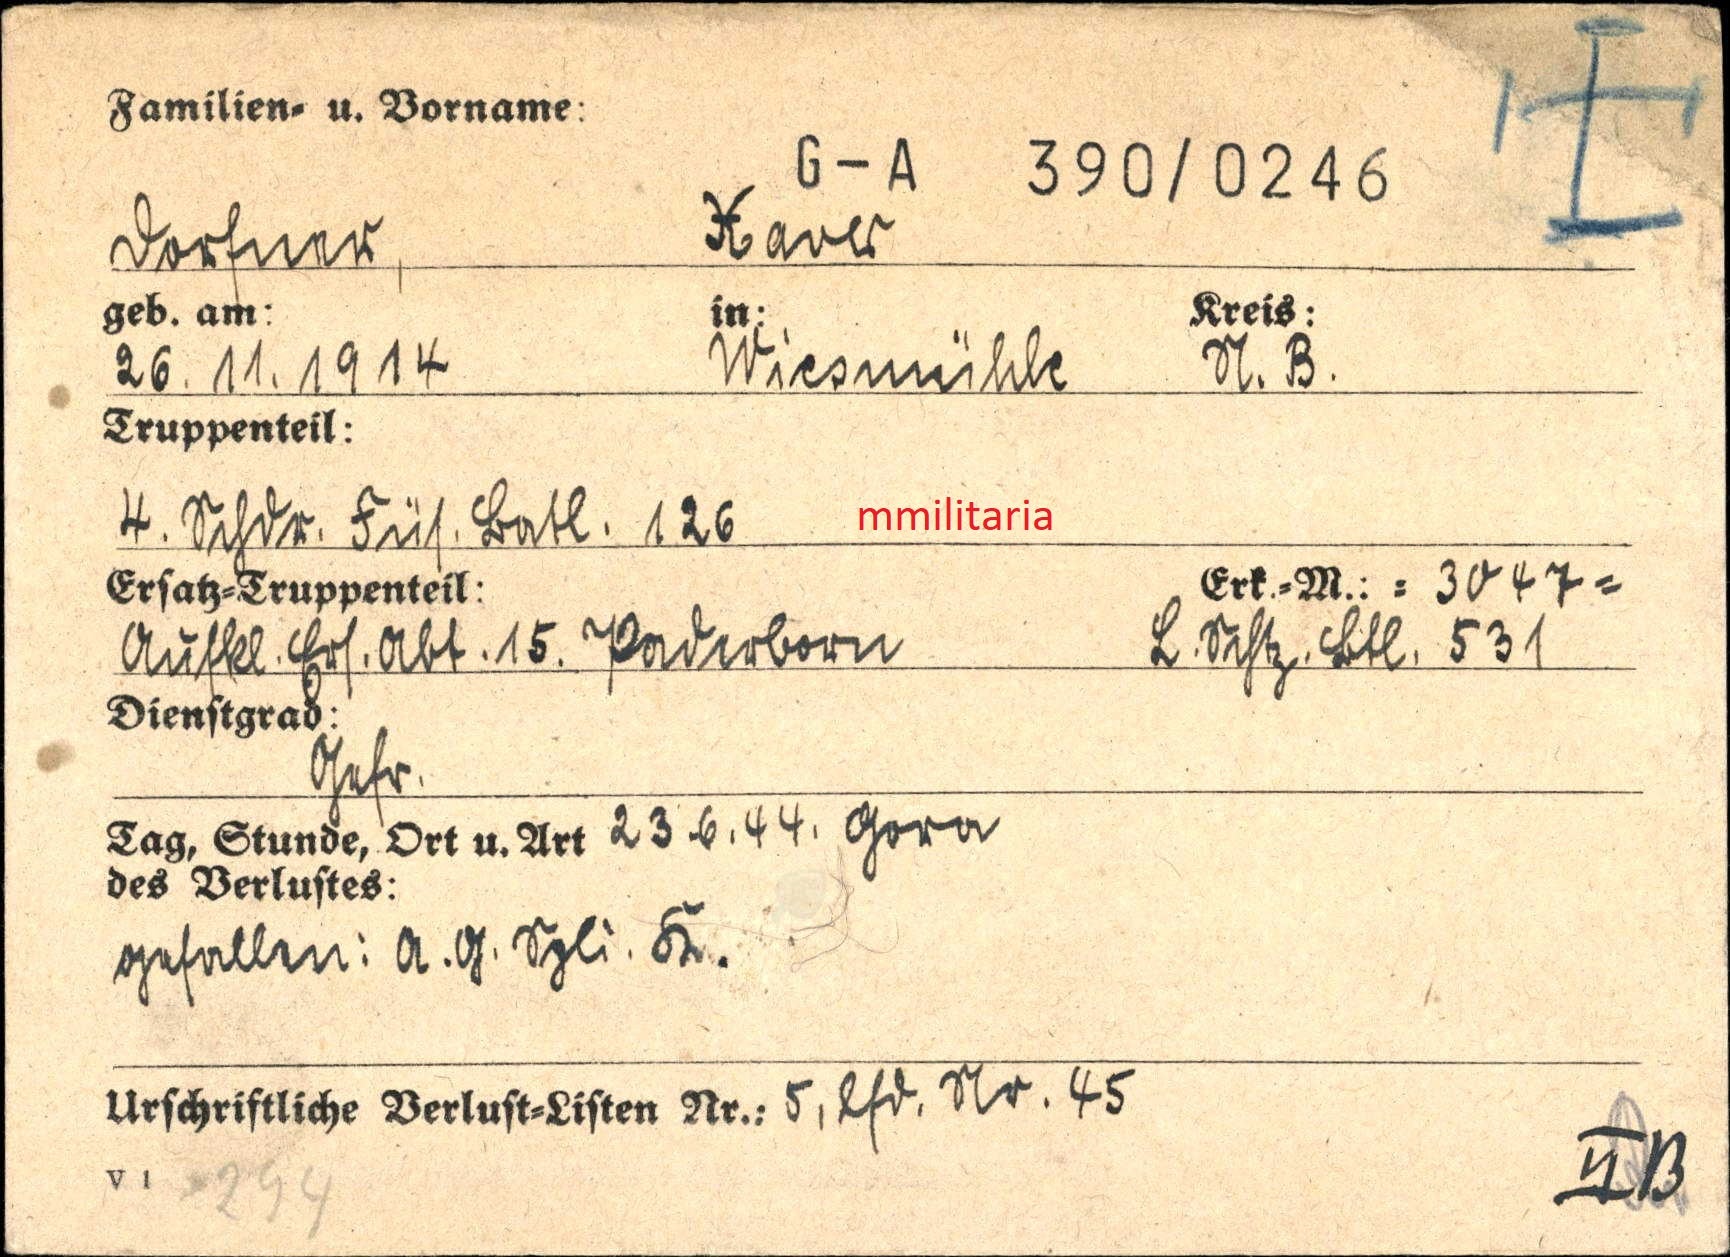 Familien- u. Vorname:
G-A 390/0246
Dorfner, Xaver
geb. am: in: Kreis:
26.11.1914 Wiesmühle N.B.
Truppenteil:
4. Schdr. Füs. Batl. 126
mmilitaria
Ersatz-Truppenteil: Erk.-M.: = 3047 =
Aufkl. Ers. Abt. 15. Paderborn L. Schtz. Btl. 531
Dienstgrad:
Gefr.
Tag, Stunde, Ort u. Art 23.6.44. Gora
des Verlustes:
gefallen: A.G. Spli.
Urschriftliche Verlust-Listen Nr.: 5, lfd. Nr. 45
V 1 294
II B